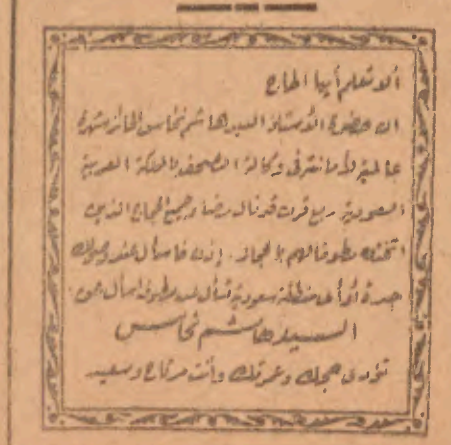 ألا تعلم أيها الحاج
ان حضرة الأستاذ السيد هاشم نحاس الحائز شهرة
عالمية لأمانته في وكالة الصحف بالمملكة العربية
السعودية ربع قرن قد نال رضاء جميع الحجاج الذين
اتخذوه مطوفا لهم بالحجاز. إذن فاسأل عند وصولك
جدة أو أى منطقة سعودية تسأل عن مطوف اسأل عن
السيد هاشم نحاس
تؤدى حجك وعمرتك وأنت مرتاح وسعيد